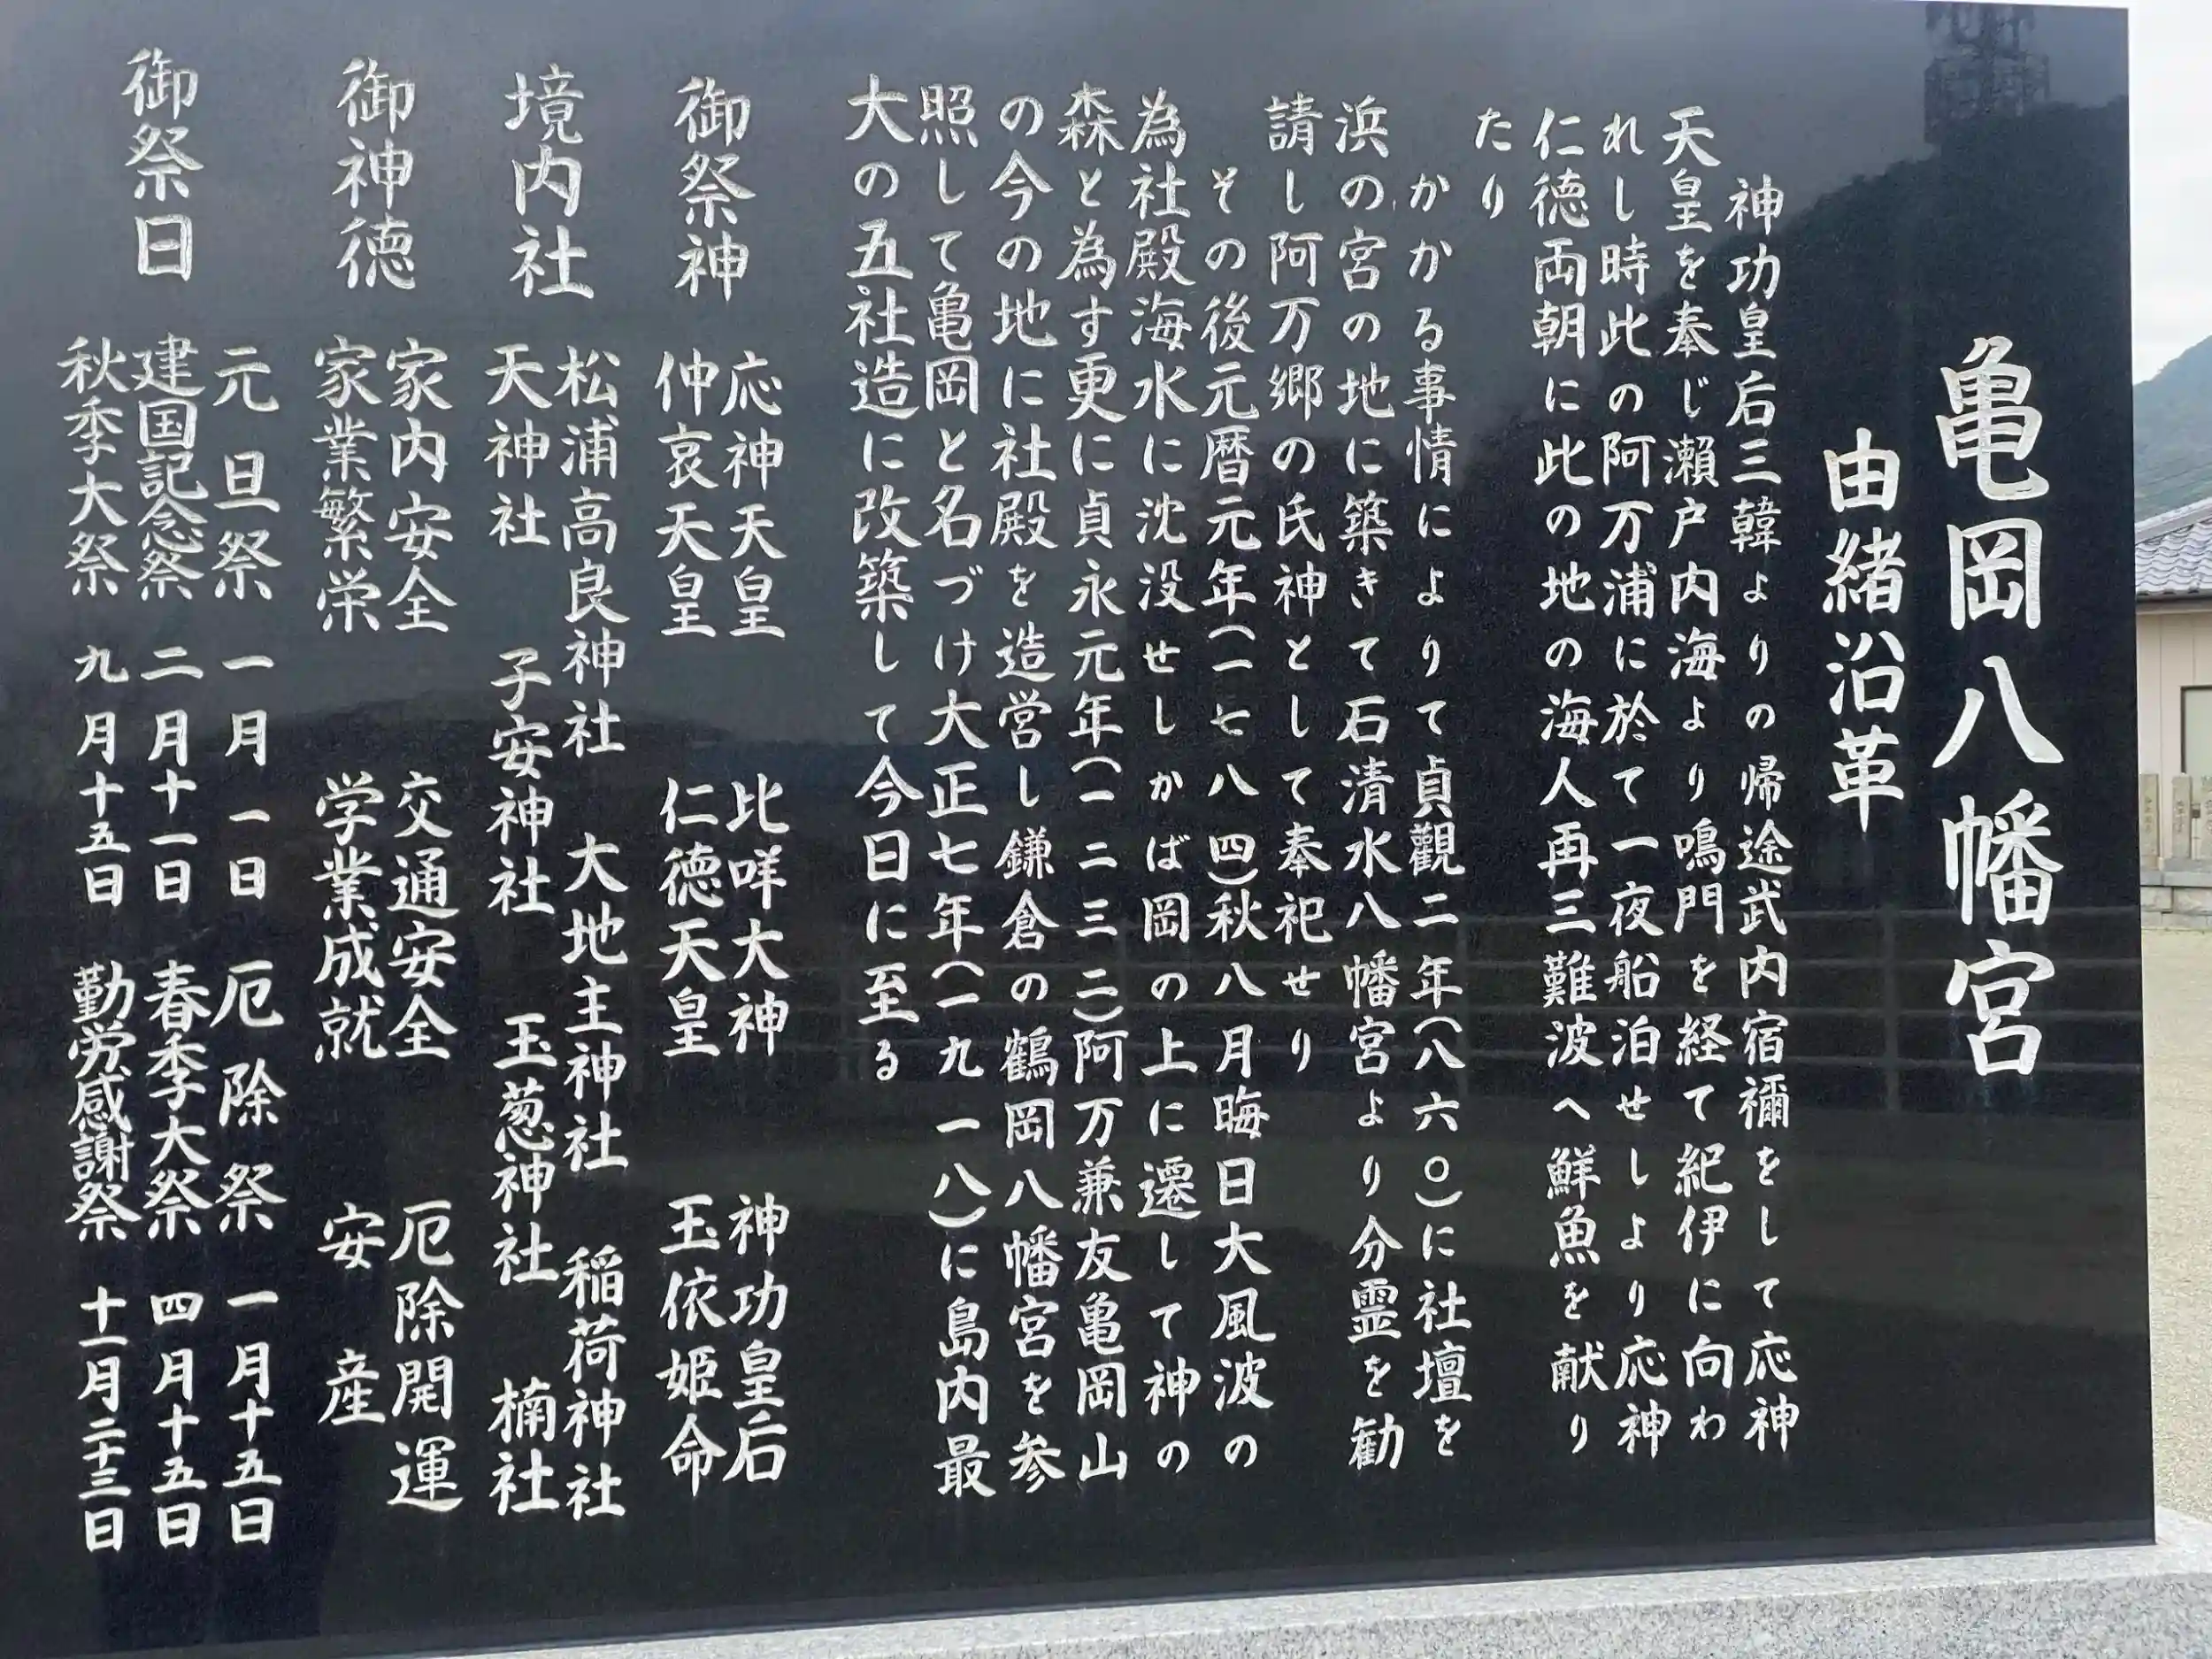 亀岡八幡宮
由緒沿革
神功皇后三韓よりの帰途武内宿禰をして応神
天皇を奉じ瀬戸内海より鳴門を経て紀伊に向わ
れし時此の阿万浦に於て一夜船泊せしより応神
仁徳両朝に此の地の海人再三難波へ鮮魚を献り
たり
かかる事情によりて貞觀二年(八六〇)に社壇を
浜の宮の地に築きて石清水八幡宮より分霊を勧
請し阿万郷の氏神として奉祀せり
その後元暦元年(一七八四)秋八月晦日大風波の
為社殿海水に沈没せしかば岡の上に遷して神の
森と為す更に貞永元年(一二三二)阿万兼友亀岡山
の今の地に社殿を造営し鎌倉の鶴岡八幡宮を参
照して亀岡と名づけ大正七年(一九一八)に島内最
大の五社造に改築して今日に至る
御祭神
応神天皇 比咩大神 神功皇后
仲哀天皇 仁徳天皇 玉依姫命
境内社
松浦高良神社 大地主神社 稲荷神社
天神社 子安神社 玉葱神社 楠社
御神徳
家内安全 交通安全 厄除開運
家業繁栄 学業成就 安産
御祭日
元旦祭 一月一日 厄除祭 一月十五日
建国記念祭 二月十一日 春季大祭 四月十五日
秋季大祭 九月十五日 勤労感謝祭 十一月二十三日